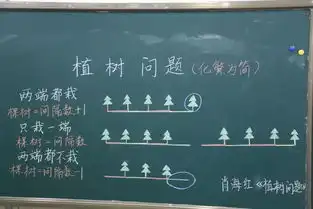 植树问题（化繁为简）
两端都栽
棵树=间隔数+1
只栽一端
棵树=间隔数
两端都不栽
棵树=间隔数-1
肖海红《植树问题》